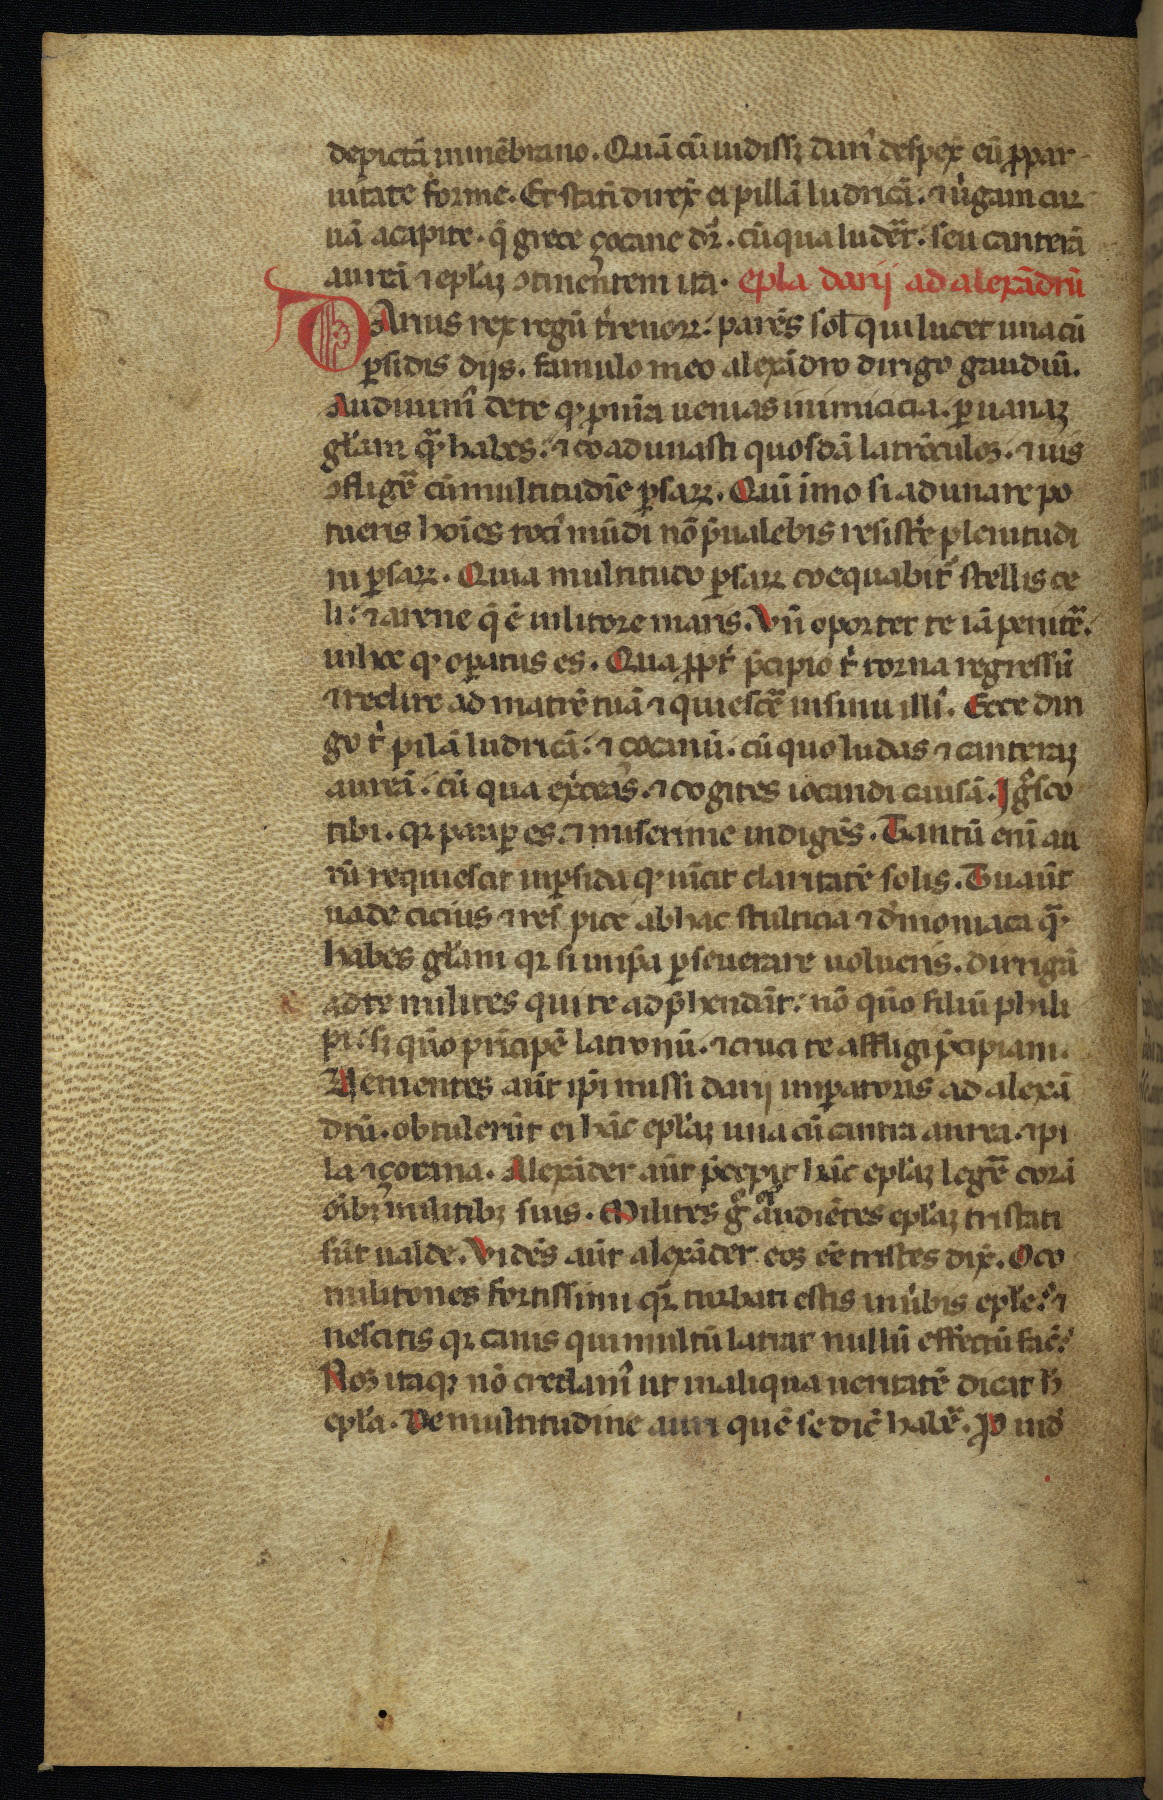 depictā ī mēbrano. Quā cū uidissȝ dari᷒ despex̄ eū ꝓpar
uitate forme. Et statī direx̄ ei pillā ludricā. ⁊ uͥgam cur
uā a capite. q̄ grece çocane dr̄. cū qua ludēt. seu canterā
aureā ⁊ eplaȝ ↄtinentem ita. epl̄a darij ad alexādrū
DArius rex regū t̄renoꝝ. parēs sol̄ qui lucet una cū
ꝑsidis dijs. famulo meo alexādro dirigo gaudiū.
Audiuim᷒ de te qꝫ ꝓpt̄ia uenias inimicicia. ꝑ uanaȝ
glāam quā habes. ⁊ coadunasti quosdā latrūculos. ⁊ uis
ↄfligē cū multitudīe ꝑsaꝝ. Qui imo si adunare po
tueris hoīes toci᷒ mūdi nō p̄ualebis resist̄e plenitudi
ni ꝑsaꝝ. Quia multitudo ꝑsaꝝ coequabit᷑ stellis ce
li. ⁊ arene q̄ ē ī litore maris. Vn̄ oportet te iā penitē.
uilit̄ qꝫ oꝑatus es. Qua ꝓpt̄ p̄cipio t̄ torna regressū
⁊ redire ad matrē tuā ⁊ quiescē in sinu illi᷒. Ecce diri
go t̄ pilā ludricā. ⁊ çocanū. cū quo ludas ⁊ canteraȝ
aureā. cū qua ex̄ceas. ⁊ cogites iocandi causā. Igͦsco
tibi. qꝛ pauꝑ es. ⁊ miserime indigēs. Tantū enī au
rū requiescit ī ꝑsida qꝫ uīcit claritatē solis. Tu aūt
uade cicius ⁊ respice ab hac stulticia ⁊ d̄moniaca quā
habes glāam qꝛ si ī ip̄a ꝑseuerare uolueris. dirrigā
ad te milites qui te adp̄hendāt. nō quō filiū phili
pi. sȝ quō prīcipē latronū. ⁊ cruci te affligi p̄cipiam.
Uenientes aūt ip̄i missi darij imꝑatoris ad alexā
drū. obtulerūt ei hāc eplaȝ una cū cantra aurea. ⁊ pi
la ⁊ çocana. Alexāder aūt p̄cepit hāc eplaȝ legē corā
oībꝫ militibꝫ suis. Milites gͦ audiētes eplaȝ tristati
sūt ualde. Vidēs aūt alexāder eos eē tristes dix̄. O co
militones fortissimi qr̄ turbati estis ī ūbis eple. ⁊
nescitis qꝛ canis qui multū latrat nullū effectū fac̄.
Nos itaqꝫ nō credam᷒ ut in aliqua ueritatē dicat h̄
epl̄a. De multitudine auri quē se dic̄ habē. Ꝓ uid̄